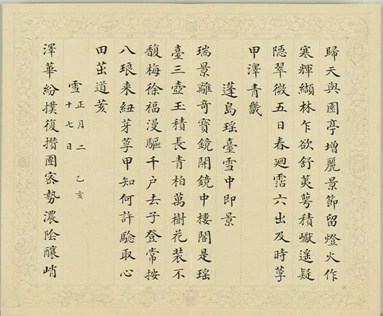 歸天與園亭增麗景節留燈火作
寒輝纈林乍欲舒蓂萼積巘遥疑
隱翠微五日春迴霑六出及時莩
甲澤青畿
蓬島瑤臺雪中即景
瑞景離奇寶鏡開鏡中樓閣是瑤
臺三壺玉積長青柏萬樹花裝不
馥梅徐福漫驅千户去子登常按
八琅來紐芽莩甲知何許驗取心
田茁道荄
雪 正月二十七日 乙亥
澤華紛撲復攢團客勢濃陰釀峭